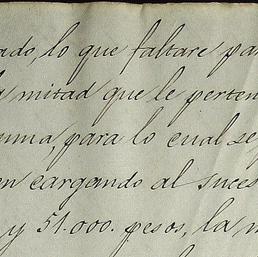 ado, lo que faltare pa
a mitad que le perten
uma, para lo cual se
en cargando al suces
y 51.000. pesos, la m